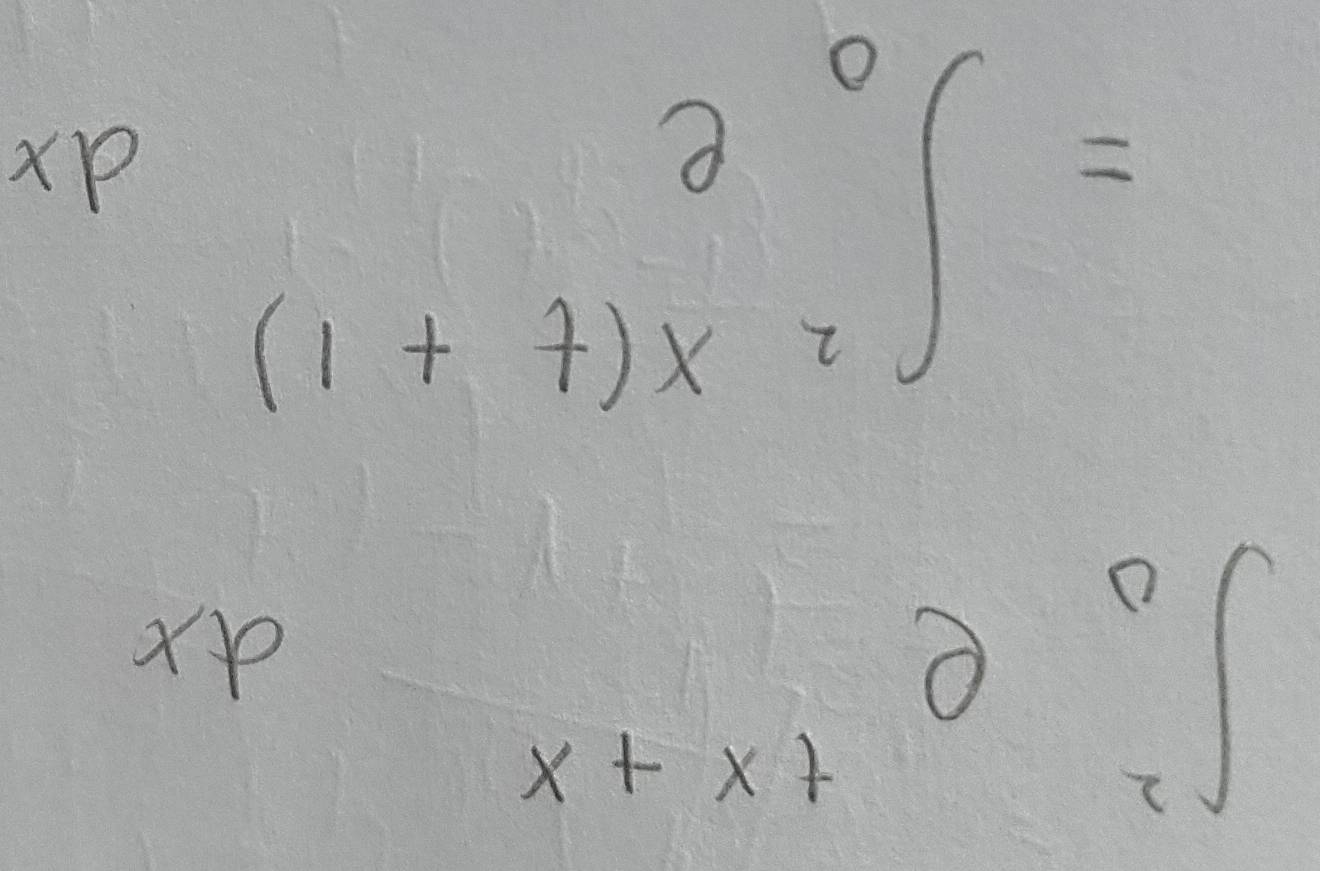 ∫₀² e^{tx + x} dx
= ∫₀² e^{x(t + 1)} dx